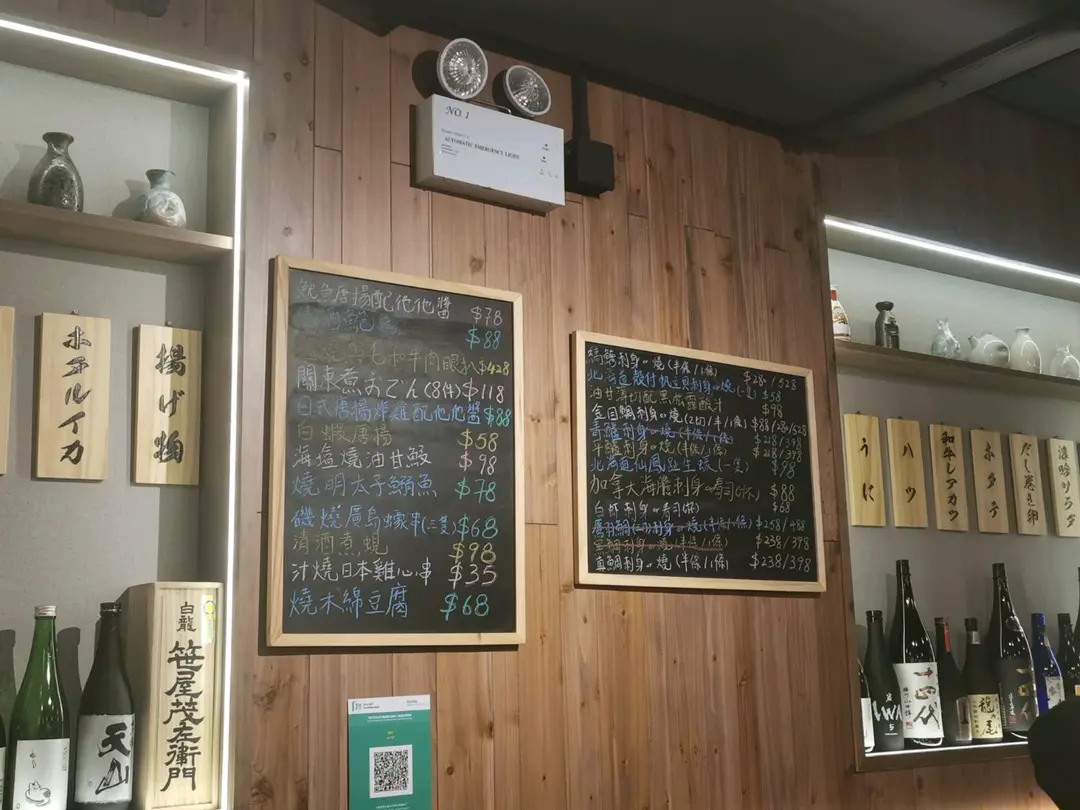 NO. 1
AUTOMATIC EMERGENCY LIGHT
魷魚唐揚配他他醬 $78
$88
和牛肉眼扒 $428
関東煮おでん(8件) $118
日式唐揚炸雞配他他醬 $88
白蝦唐揚 $58
海塩燒油甘鮫 $98
燒明太子鯛魚 $78
磯燒廣島蠔串(三隻) $68
清酒煮蜆 $98
汁燒日本雞心串 $35
燒木綿豆腐 $68
刺身or燒(半條/1條) $280/528
北海道殼付帆立貝刺身or燒(一隻) $58
油甘薄切配黑松露酸汁 $98
金目鯛刺身or燒(2切/半/1條) $88/280/528
刺身or燒(半條/1條) $218/398
刺身or燒(半條/1條) $218/398
北海道仙鳳趾生蠔(一隻) $98
加拿大海膽刺身or壽司(1杯) $88
白蝦刺身or壽司(1杯) $68
刺身or燒(半條/1條) $258/488
刺身or燒(半條/1條) $238/398
真鯛刺身or燒(半條/1條) $238/398
ホタルイカ
揚げ物
うに
ハツ
和牛レアカツ
ホタテ
だし巻き卵
サラダ
白龍
笹屋茂左衛門
天山
十四代
龍の尾